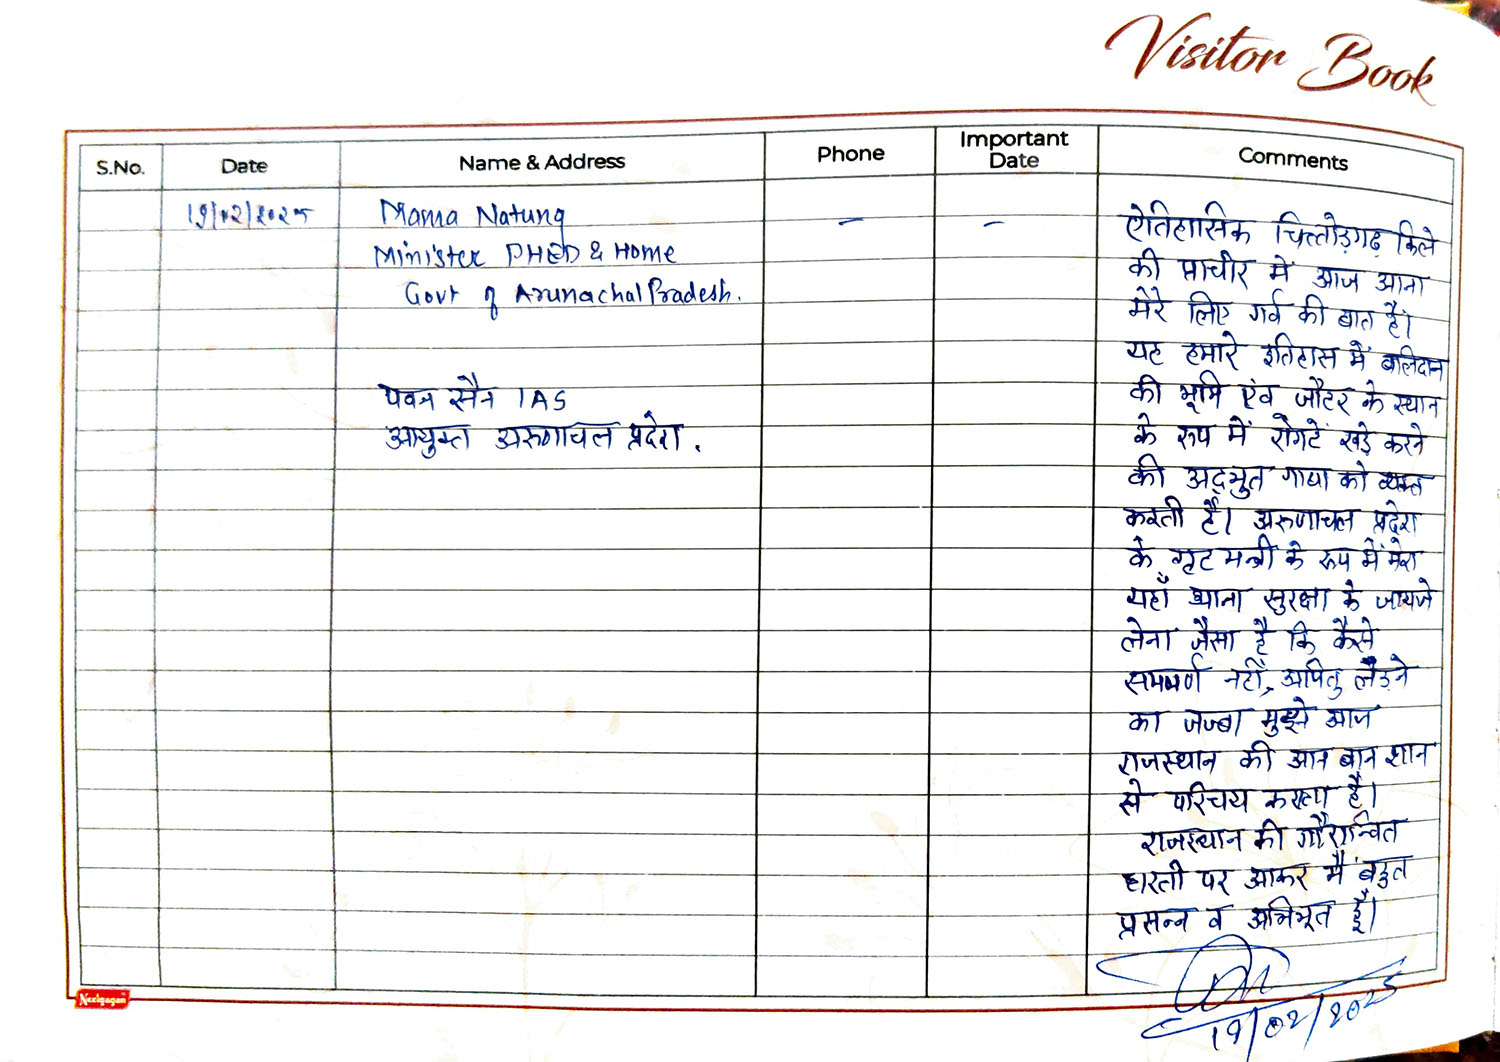 Visitor Book
S.No. Date Name & Address Phone Important Date Comments
19/02/2025 Mama Natung - -
Minister PHED & Home
Govt of Arunachal Pradesh.
पवन सैन IAS
आयुक्त अरुणाचल प्रदेश.
ऐतिहासिक चित्तौड़गढ़ किले
की प्राचीर में आज आना
मेरे लिए गर्व की बात है।
यह हमारे इतिहास में बलिदान
की भूमि एंव जौहर के स्थान
के रूप में रोंगटें खड़े करने
की अद्भुत गाथा को व्यक्त
करती है। अरुणाचल प्रदेश
के गृह मन्त्री के रूप में मेरा
यहाँ आना सुरक्षा के जायजे
लेना जैसा है कि कैसे
समपर्ण नहीं, अपितु लड़ने
का जज्बा मुझे आज
राजस्थान की आन बान शान
से परिचय करता है।
राजस्थान की गौरान्वित
धरती पर आकर मैं बहुत
प्रसन्न व अभिभूत हूँ।
19/02/2025
Neelgagan